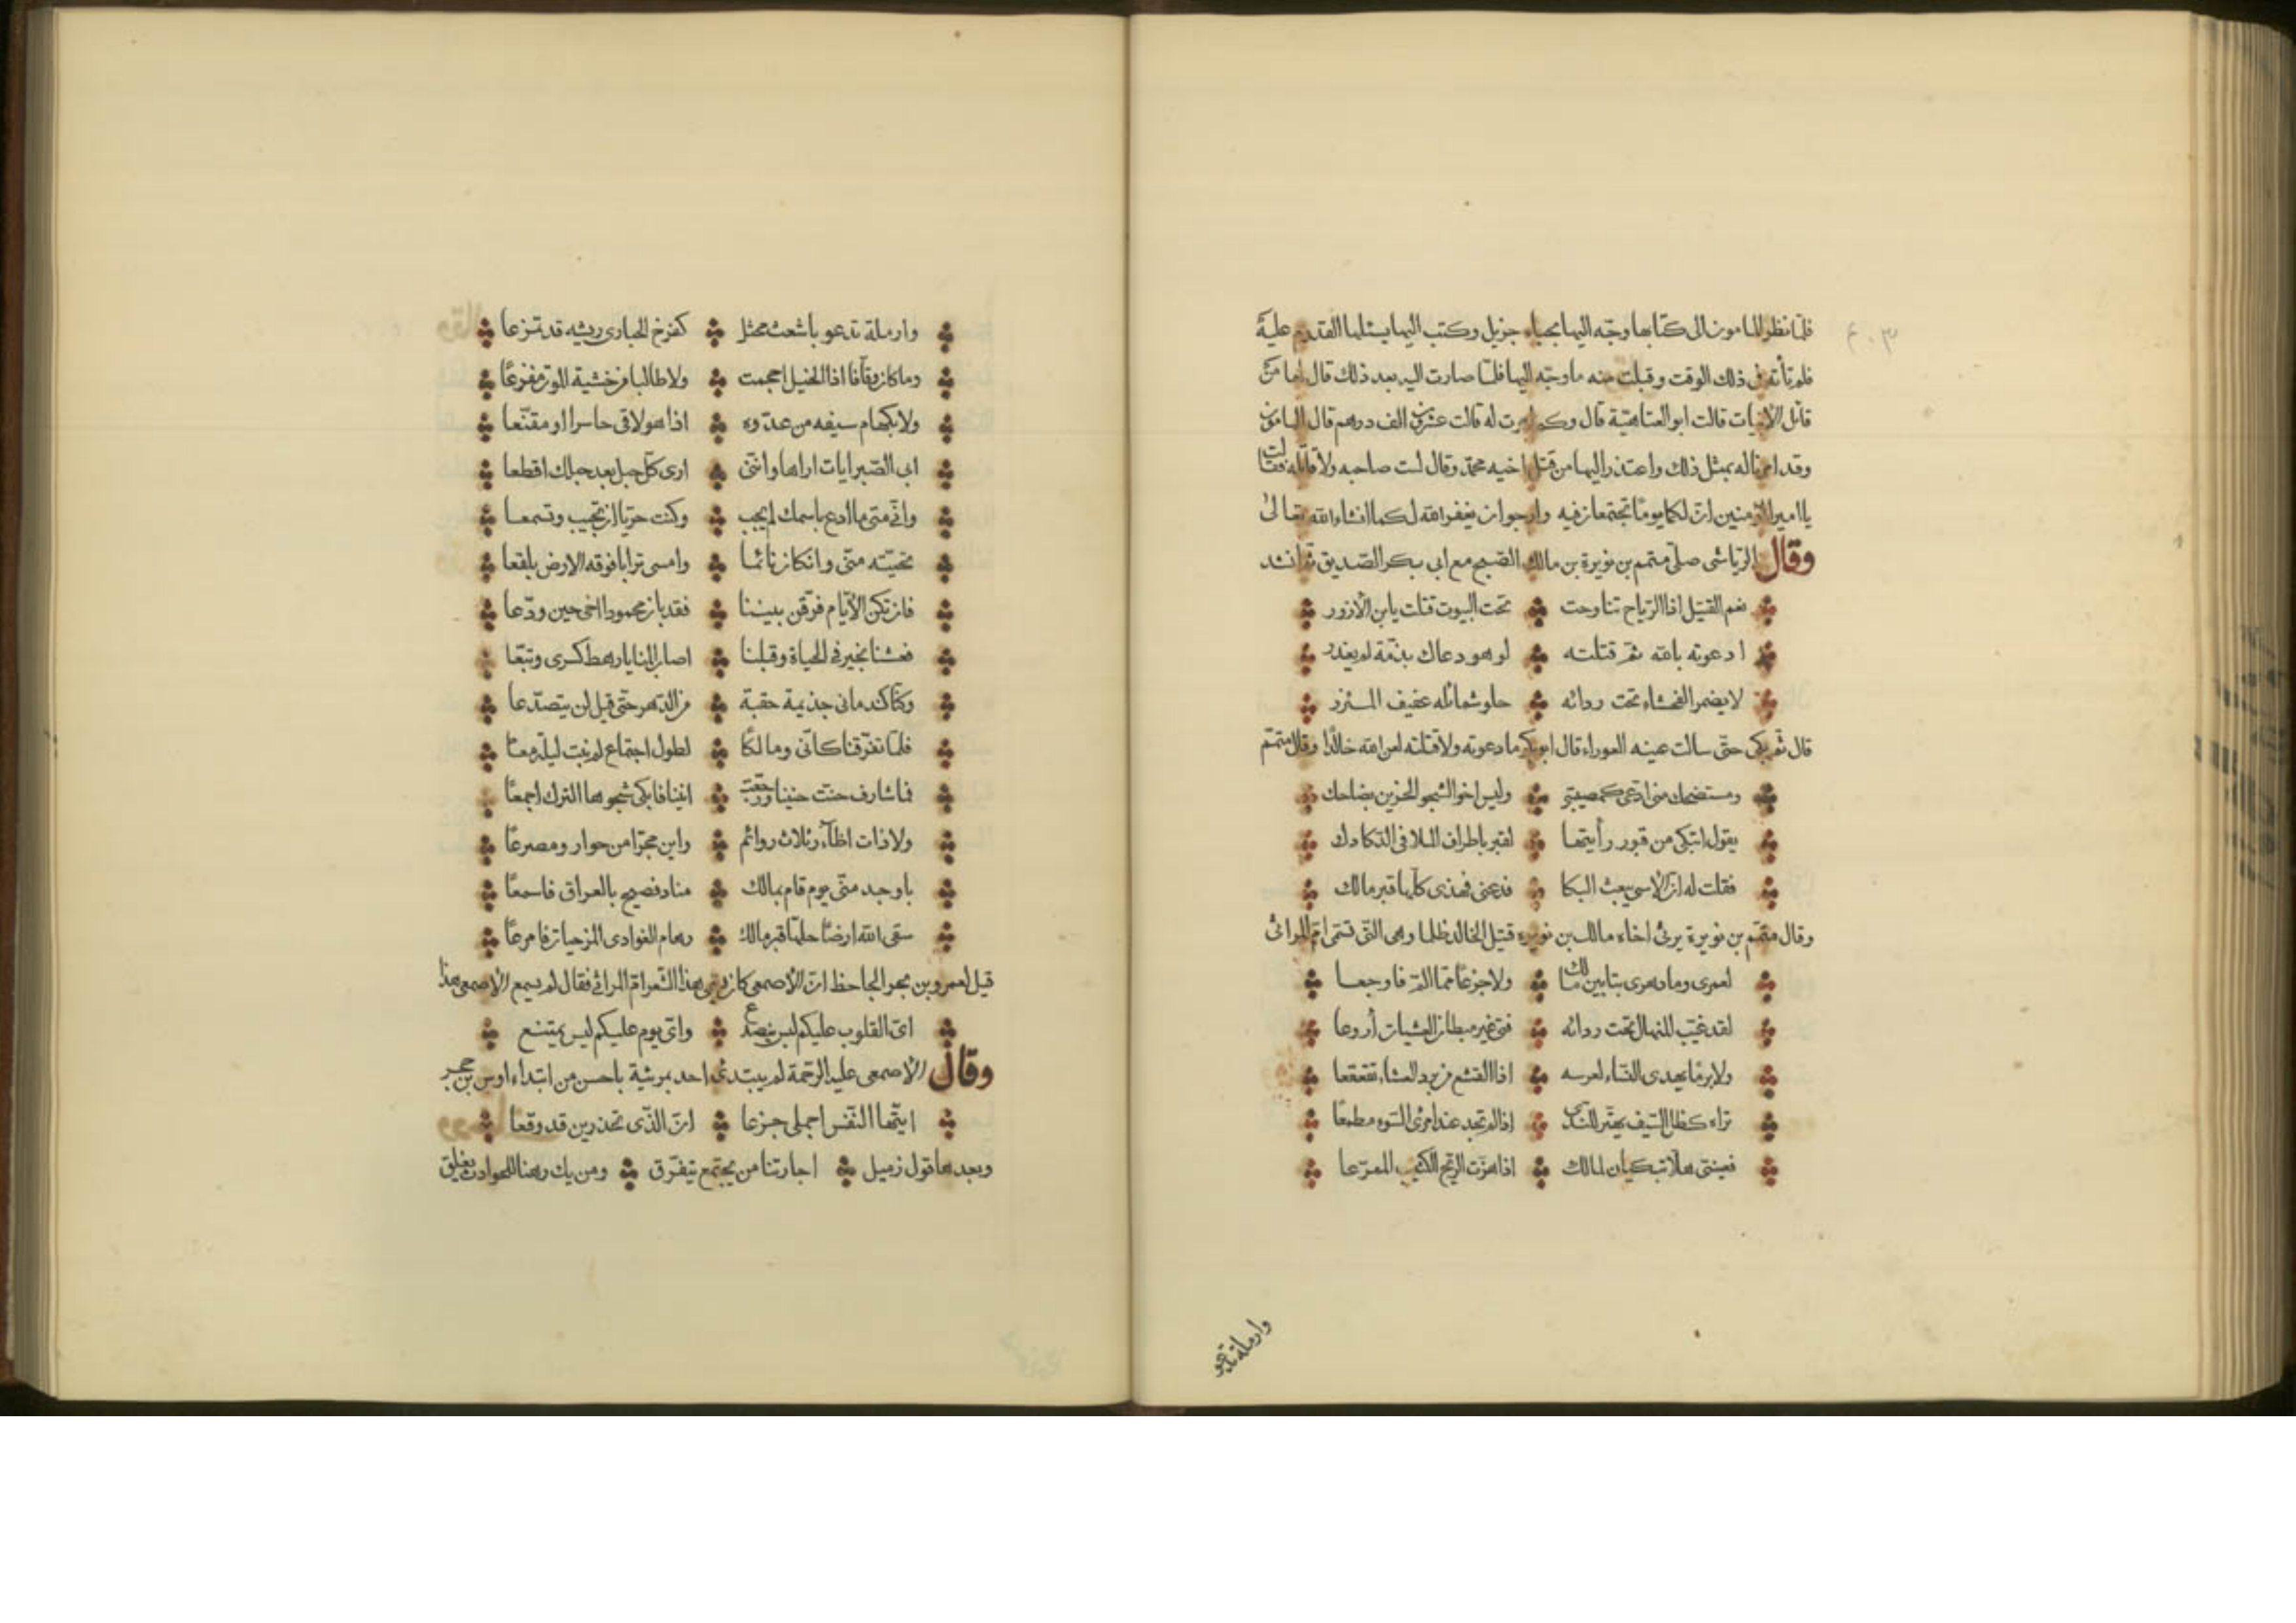 فلمّا نظر المامون الى كتابها وجّه اليها بحباء جزيل وكتب اليها يسئلها القدوم عليه
فلم تأته في ذلك الوقت وقبلت منه ما وجّه اليها فلمّا صارت اليه بعد ذلك قال لها من
قائل الابيات قالت ابو العتاهيّة قال وكم امرت له قالت عشرين الف درهم قال المامون
وقد امرنا له بمثل ذلك واعتذر اليها من قتل اخيه محمّد وقال لست صاحبه ولا قاتله فقالت
يا امير المؤمنين انّ لكما يومًا تجتمعان فيه وارجو ان يغفر الله لكما انشاء الله تعالى
وقال الرّياشى صلّى متمم بن نويرة بن مالك الصّبح مع ابى بكر الصّديق ثمّ انشد
نعم القتيل اذا الرّياح تناوحت تحت البيوت قتلت يابن الأزور
ادعوته بالله ثمّ قتلته لو هو دعاك بذمّة لم يغدر
لا يضمر الفحشاء تحت ردائه حلو شمائله عفيف المئزر
قال ثمّ بكى حتّى سالت عينه العوراء قال ابو بكر ما دعوته ولا قتلته لعن الله خالدًا وقال متمّم
ومستضحك منى ادّعى كمصيبتى وليس اخو الشجو الحزين بضاحك
يقول اتبكى من قبور رأيتها لقبر باطراف الملا فى الدّكادك
فقلت له ان الاسى يبعث البكا فدعنى فهذى كلّها قبر مالك
وقال متمّم بن نويرة يرثى اخاه مالك بن نويره قتيل الخالد ظلما وهى التّى تسمّى امّ المراثى
لعمرى وما دهرى بتابين مالك ولا جزعًا ممّا المّ فاوجعا
لقد غيّب المنهال تحت ردائه فتى غير مبطان العشيات أروعا
ولا برمًا يهدى النّساء لعرسه اذا القشع من برد الشتاء تقعقعا
تراه كنصل السّيف يهتزّ للنّدى اذا لم تجد عند امرئ السّوء مطمعًا
فعينىّ هلّا تبكيان لمالك اذا هزّت الرّيح الكنيف المرّعا
وارملة تدعو
وارملة تدعو باشعث محثل كفرخ الحبارى ريشه قد تزعا
وما كان وقّافا اذا الخيل احجمت ولا طالبا من خشية الموت مفزعًا
ولا بكهام سيفه من عدّوه اذا هو لاقى حاسرا او مقنّعا
ابى الصّبر ايات اراها وانّنى ارى كلّ حبل بعد حبلك اقطعا
وانّى متى ما ادع باسمك لم يجب وكنت حريّا ان تجيب وتسمعا
تحيّته منّى وان كان نائيًا وامسى ترابا فوقه الارض بلقعا
فان تكن الأيّام فرّقن بيننا فقد بان محمودا اخى حين ودّعا
فعشنا بخير فى الحياة وقبلنا اصاب المنايا رهط كسرى وتبّعا
وكنّا كندمانى جذيمة حقبة من الدّهر حتّى قيل لن يتصدّعا
فلمّا تفرّقنا كانّى ومالكًا لطول اجتماع لم نبت ليلة معًا
فما شارف حنت حنينا ورجّعت انينا فابكى شجوها البرك اجمعًا
ولا ذات اظآر ثلاث روائم راين مجرّا من حوار ومصرعًا
باوجد منّى يوم قام بمالك مناد فصيح بالعراق فاسمعًا
سقى الله ارضًا حلّها قبر مالك رهام الغوادى المزجيات فامرعًا
قيل لعمرو بن بحر الجاحظ انّ الأصمعى كان يسمى هذا الشّعر امّ المراثى فقال لم يسمع الأصمعى هذا
اىّ القلوب عليكم ليس ينصدع واىّ يوم عليكم ليس يمتنع
وقال الأصمعى عليه الرّحمة لم يبتدئ احد بمرثية باحسن من ابتداء اوس بن حجر
ايتّها النّفس اجملى جزعا انّ الذّى تحذرين قد وقعا
وبعدها قول زميل اجارتنا من يجتمع يتفرّق ومن يك رهنا للحوادث يغلق